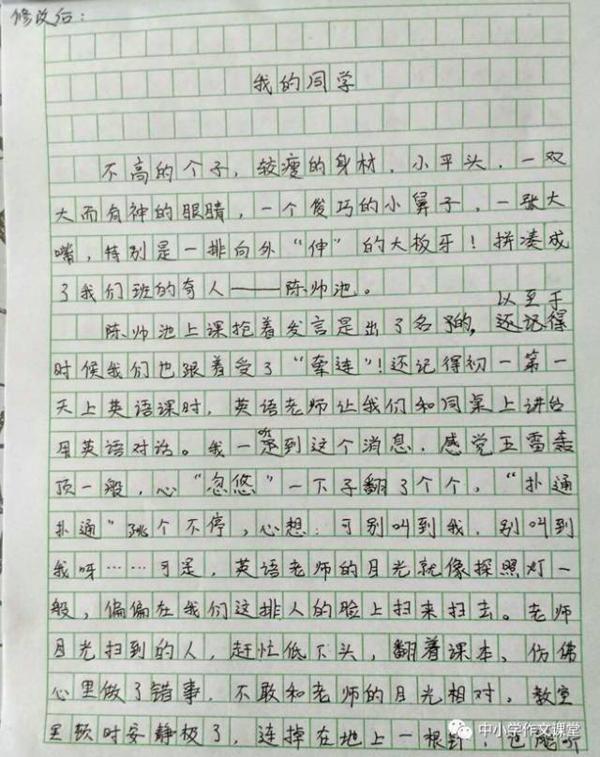 修改后：
我的同学
不高的个子，较瘦的身材，小平头，一双
大而有神的眼睛，一个俊巧的小鼻子，一张大
嘴，特别是一排向外“伸”的大板牙！拼凑成
了我们班的奇人——陈帅池。
以至于
陈帅池上课抢着发言是出了名的，还记得
时候我们也跟着受了“牵连”！还记得初一第一
天上英语课时，英语老师让我们和同桌上讲台
用英语对话。我一听到这个消息，感觉五雷轰
顶一般，心“忽悠”一下子翻了个个，“扑通
扑通”跳个不停，心想：可别叫到我，别叫到
我呀……可是，英语老师的目光就像探照灯一
般，偏偏在我们这排人的脸上扫来扫去。老师
目光扫到的人，赶忙低下头，翻着课本，仿佛
心里做了错事，不敢和老师的目光相对。教室
里顿时安静极了，连掉在地上一根针，也能听
中小学作文课堂